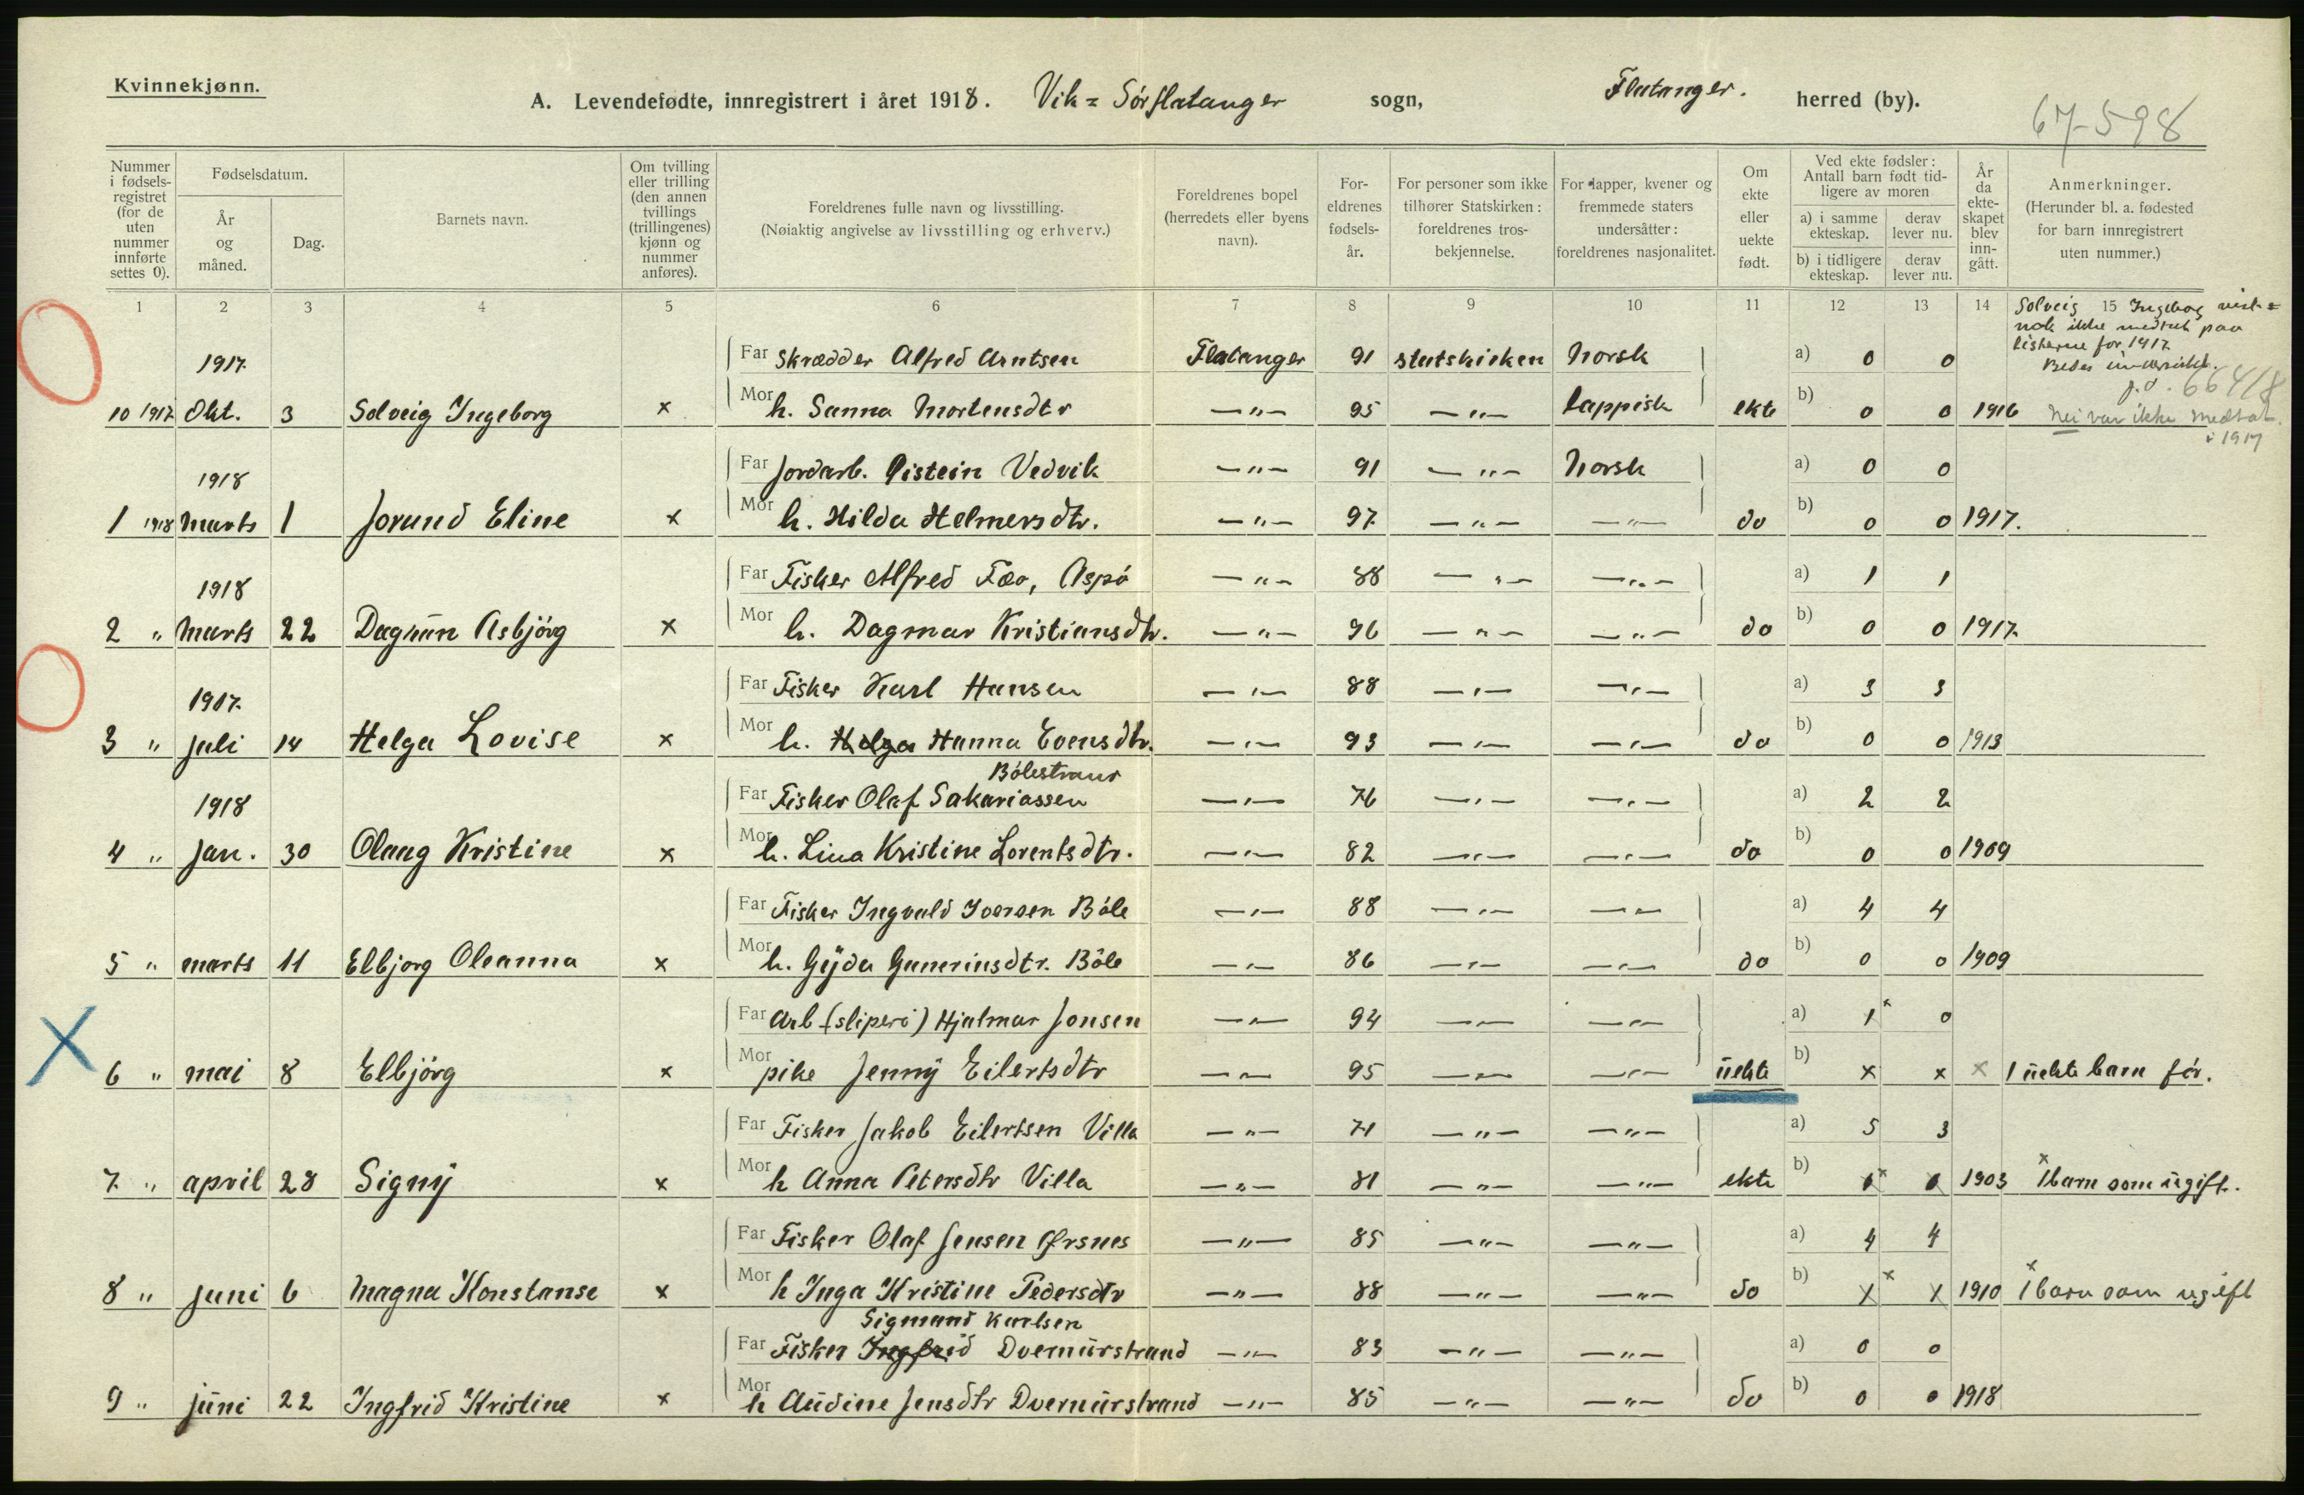 Kvinnekjønn.
A. Levendefødte, innregistrert i året 1918. Vik = Sørflatanger sogn, Flatanger. herred (by).
67-598
Nummer i fødsels-registret (for de uten nummer innførte settes 0).
Fødselsdatum.
År og måned.
Dag.
Barnets navn.
Om tvilling eller trilling (den annen tvillings (trillingenes) kjønn og nummer anføres).
Foreldrenes fulle navn og livsstilling.
(Nøiaktig angivelse av livsstilling og erhverv.)
Foreldrenes bopel (herredets eller byens navn).
For-eldrenes fødsels-år.
For personer som ikke tilhører Statskirken: foreldrenes tros-bekjennelse.
For lapper, kvener og fremmede staters undersåtter: foreldrenes nasjonalitet.
Om ekte eller uekte født.
Ved ekte fødsler:
Antall barn født tid-ligere av moren
a) i samme ekteskap.
derav lever nu.
b) i tidligere ekteskap.
derav lever nu.
År da ekte-skapet blev inn-gått.
Anmerkninger.
(Herunder bl. a. fødested for barn innregistrert uten nummer.)
1 2 3 4 5 6 7 8 9 10 11 12 13 14 15
Solveig Ingeborg
nok ikke medtat paa
listerne for 1917
664/8
1917. Far Skrædder Alfred Arntsen Flatanger 91 statskirken Norsk a) 0 0
10 1917 Okt. 3 Solveig Ingeborg × Mor h. Sanna Mortensdtr —"— 95 —"— lappisk ekte b) 0 0 1916 Nei var ikke medtat
i 1917
1918 Far Jordarb. Øistein Vedvik —"— 91 —"— Norsk a) 0 0
1 1918 Marts 1 Jorund Eline × Mor h. Hilda Helmersdtr. —"— 97 —"— —"— do b) 0 0 1917.
1918 Far Fisker Alfred Fao, Aspö —"— 88 —"— —"— a) 1 1
2 " Marts 22 Dagrun Asbjörg × Mor h. Dagmar Kristiansdtr. —"— 96 —"— —"— do b) 0 0 1917.
1917. Far Fisker Karl Hansen —"— 88 —"— —"— a) 3 3
3 " juli 14 Helga Lovise × Mor h. Helga Hanna Evensdtr. —"— 93 —"— —"— do b) 0 0 1913
Bölestrand
1918 Far Fisker Olaf Sakariassen —"— 76 —"— —"— a) 2 2
4 " Jan. 30 Olaug Kristine × Mor h. Lina Kristine Lorentsdtr. —"— 82 —"— —"— do b) 0 0 1909
Far Fisker Ingvald Iversen Böle —"— 88 —"— —"— a) 4 4
5 " marts 11 Elbjorg Oleanna × Mor h. Gyda Guneriusdtr. Böle —"— 86 —"— —"— do b) 0 0 1909
Far Arb (sliperi) Hjalmar Jonsen —"— 94 —"— —"— a) 1 × 0
6 " mai 8 Elbjörg × Mor pike Jenny Eilertsdtr —"— 95 —"— —"— uekte b) × × × 1 uekte barn för.
Far Fisker Jakob Eilertsen Villa —"— 71 —"— —"— a) 5 3
7. " april 28 Signy × Mor h Anna Petersdtr Villa —"— 81 —"— —"— ekte b) × 1903 × 1 barn som ugift.
Far Fisker Olaf Jensen Ørsnes —"— 85 —"— —"— a) 4 4
8 " juni 6 Magna Konstanse × Mor h Inga Kristine Pedersdtr —"— 88 —"— —"— do b) × × × 1910 × 1 barn som ugift
Sigmund Karlsen
Far Fisker Ingfrid Dvernurstrand —"— 83 —"— —"— a) 0 0
9 " juni 22 Ingfrid Kristine × Mor h Audine Jensdtr Dvernurstrand —"— 85 —"— —"— do b) 0 0 1918